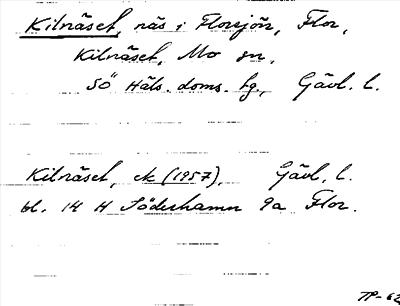 Kilnäset, näs i Florsjön, Flor,
Kilnäset, Mo sn,
Sö Häls. doms. tg., Gävl. l.
Kilnäset, ek (1957), Gävl. l.
bl. 14 H Söderhamn 9a Flor.
TP-62